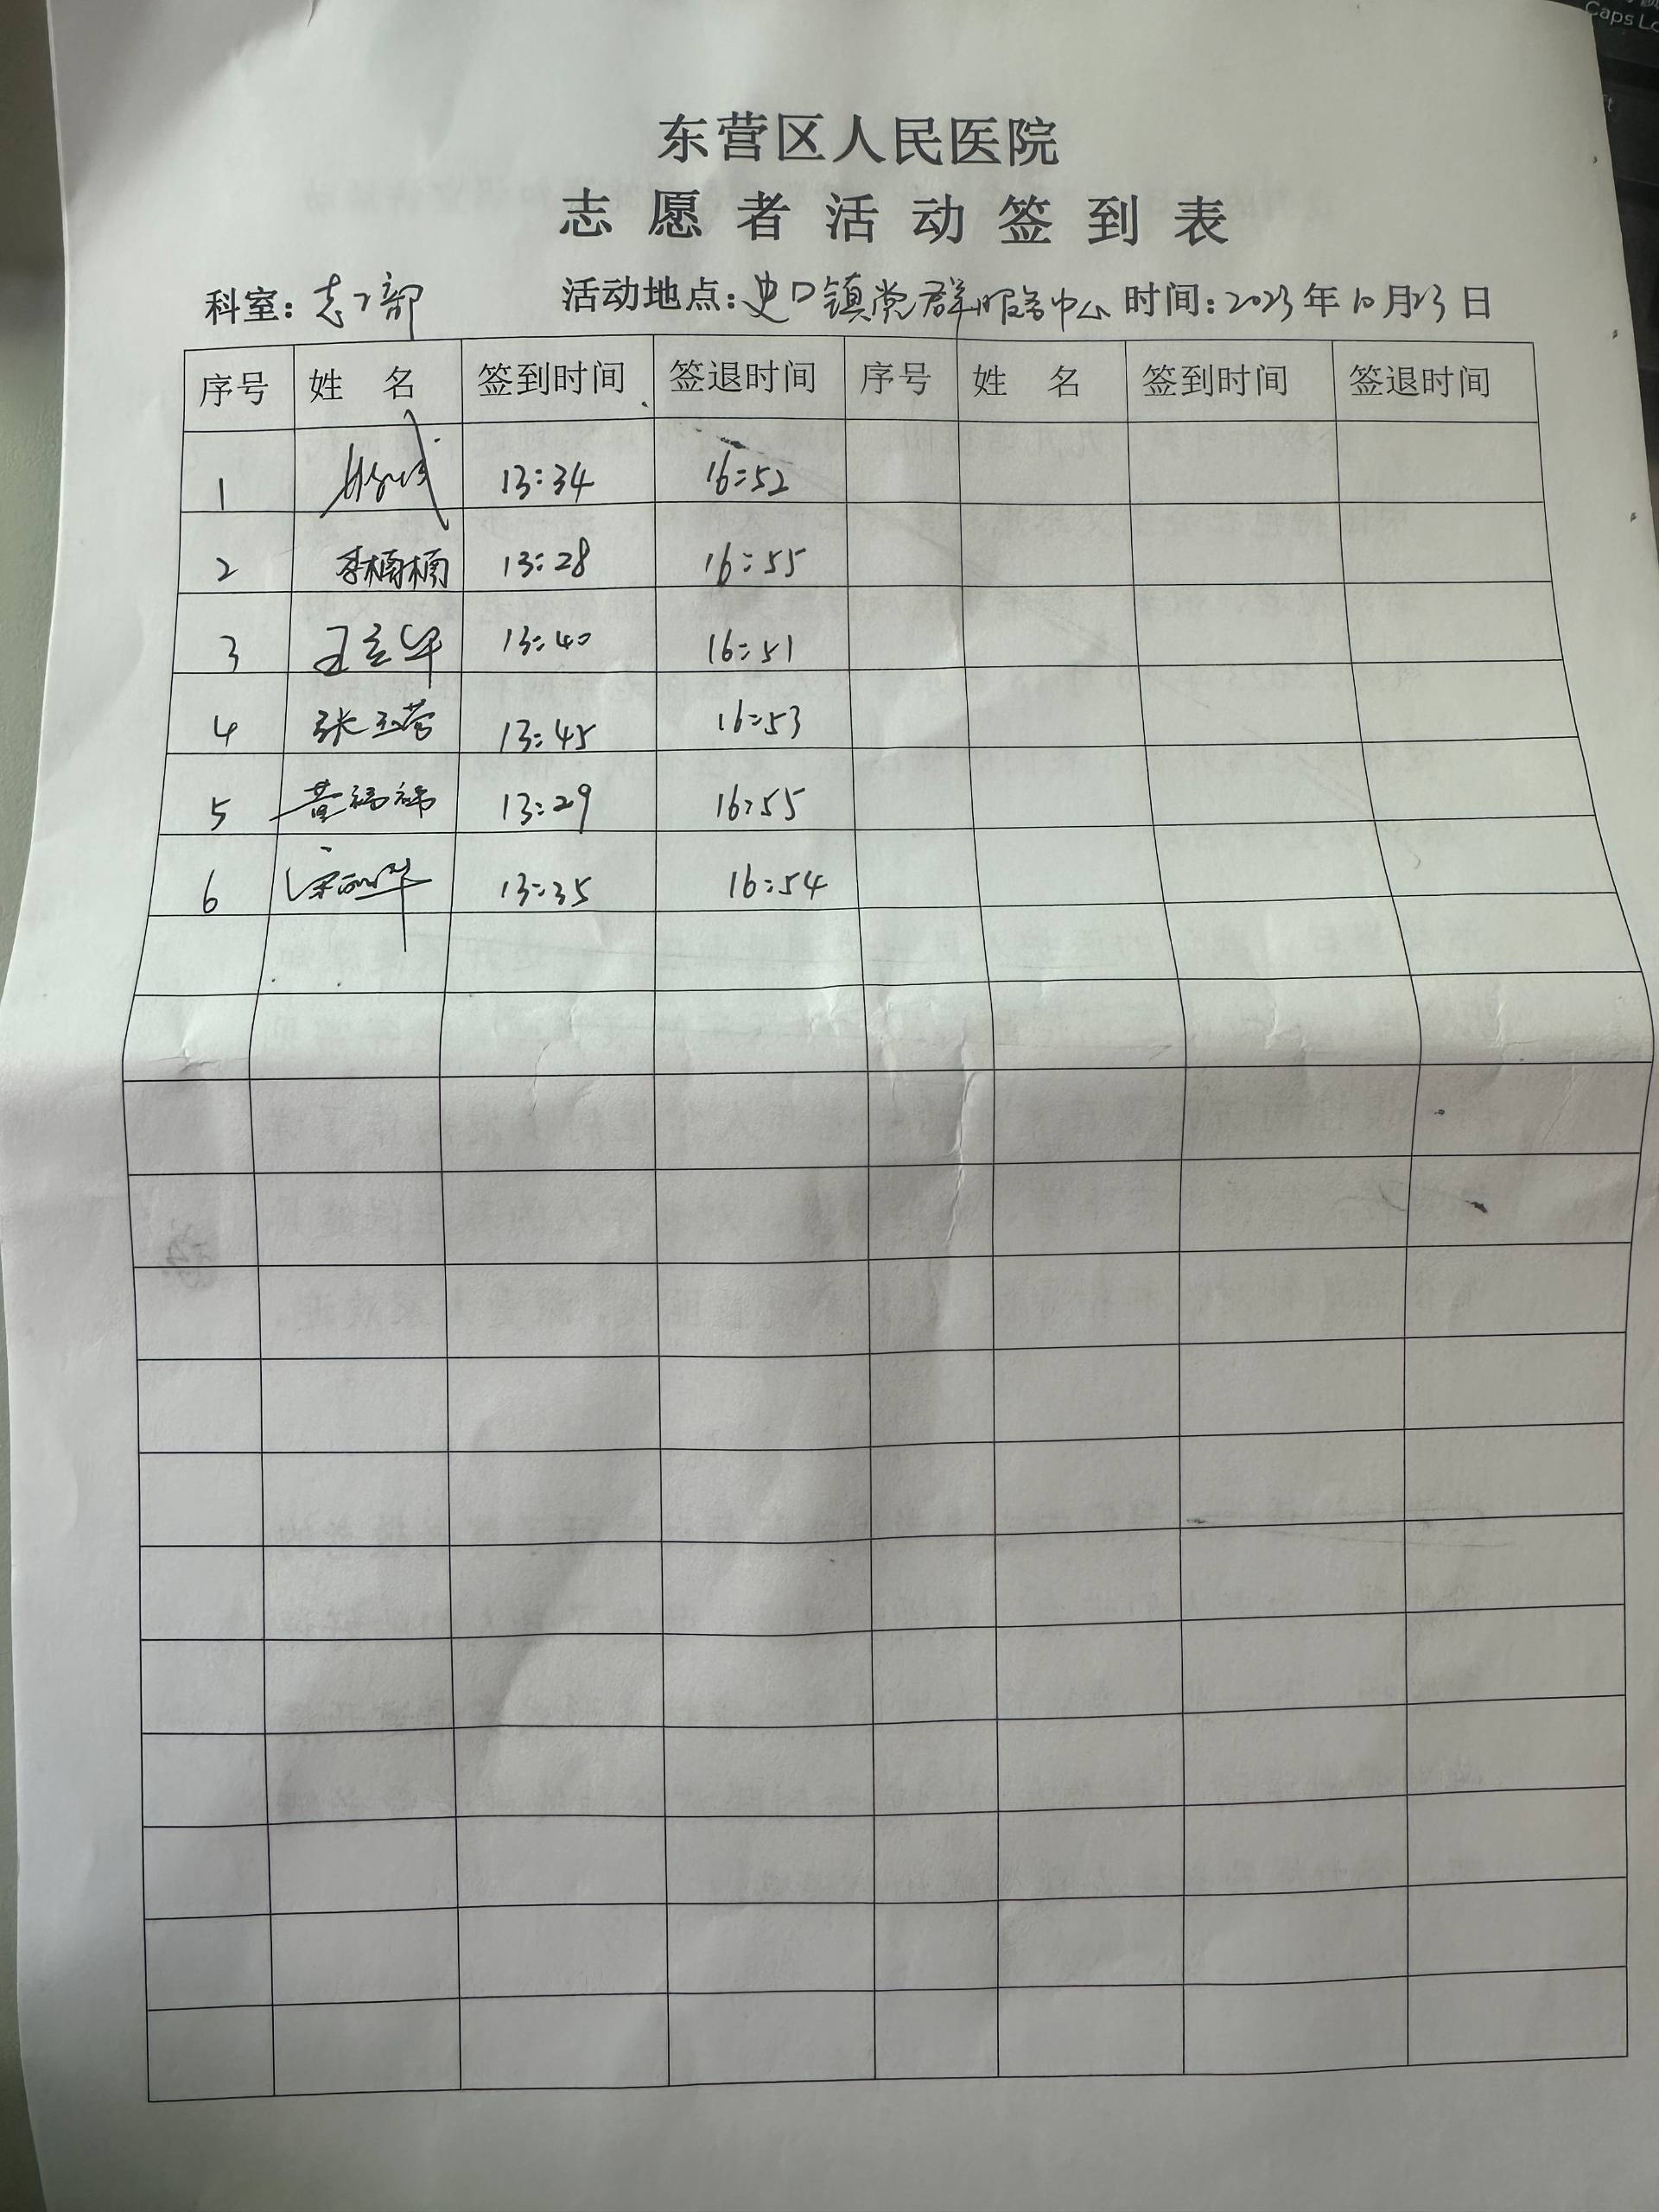 东营区人民医院
志愿者活动签到表
科室: 志工部 活动地点: 史口镇党群服务中心 时间: 2023年10月23日
序号 姓名 签到时间 签退时间 序号 姓名 签到时间 签退时间
1 13:34 16:52
2 李楠楠 13:28 16:55
3 13:40 16:51
4 张玉营 13:45 16:53
5 13:29 16:55
6 13:35 16:54
Caps Lo